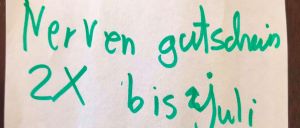 Nerven gutschein
2X bis 2 juli